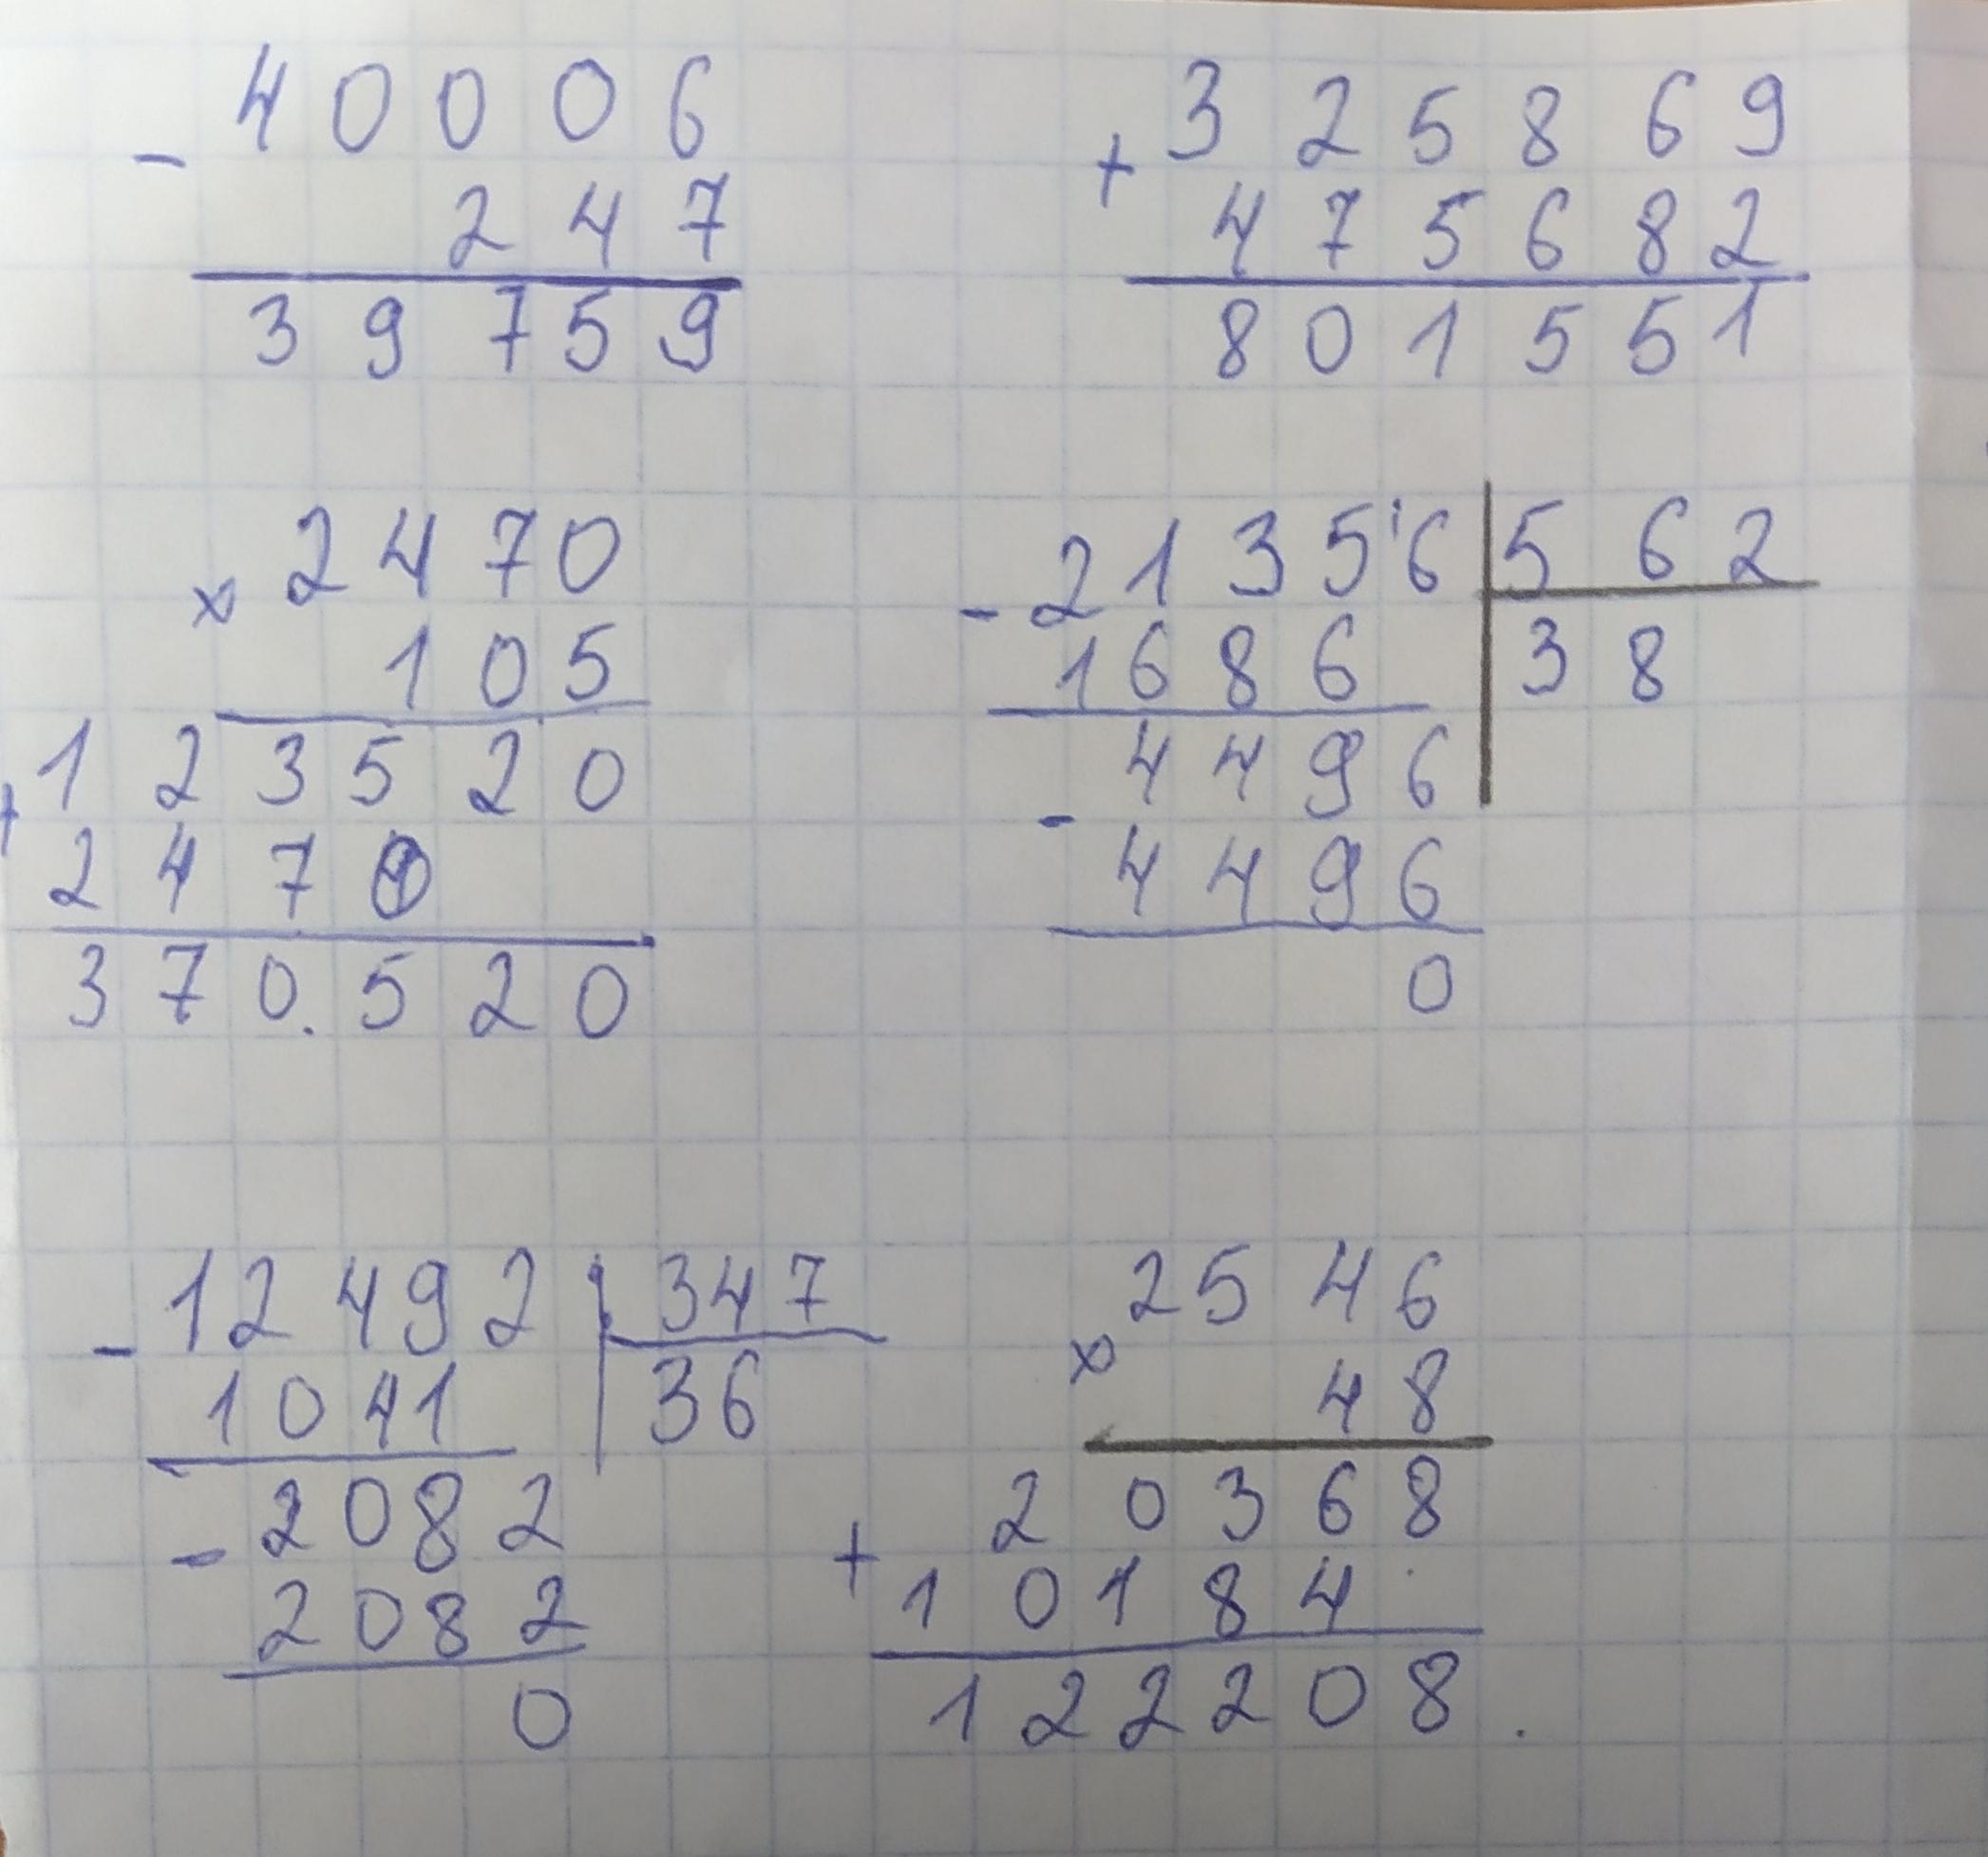 - 40006
247
39759
+ 325869
475682
801551
x 2470
105
+ 123520
2470
370.520
- 21356 | 562
1686 | 38
4496
- 4496
0
- 12492 | 347
1041 | 36
2082
- 2082
0
2546
x 48
20368
+ 10184
122208.